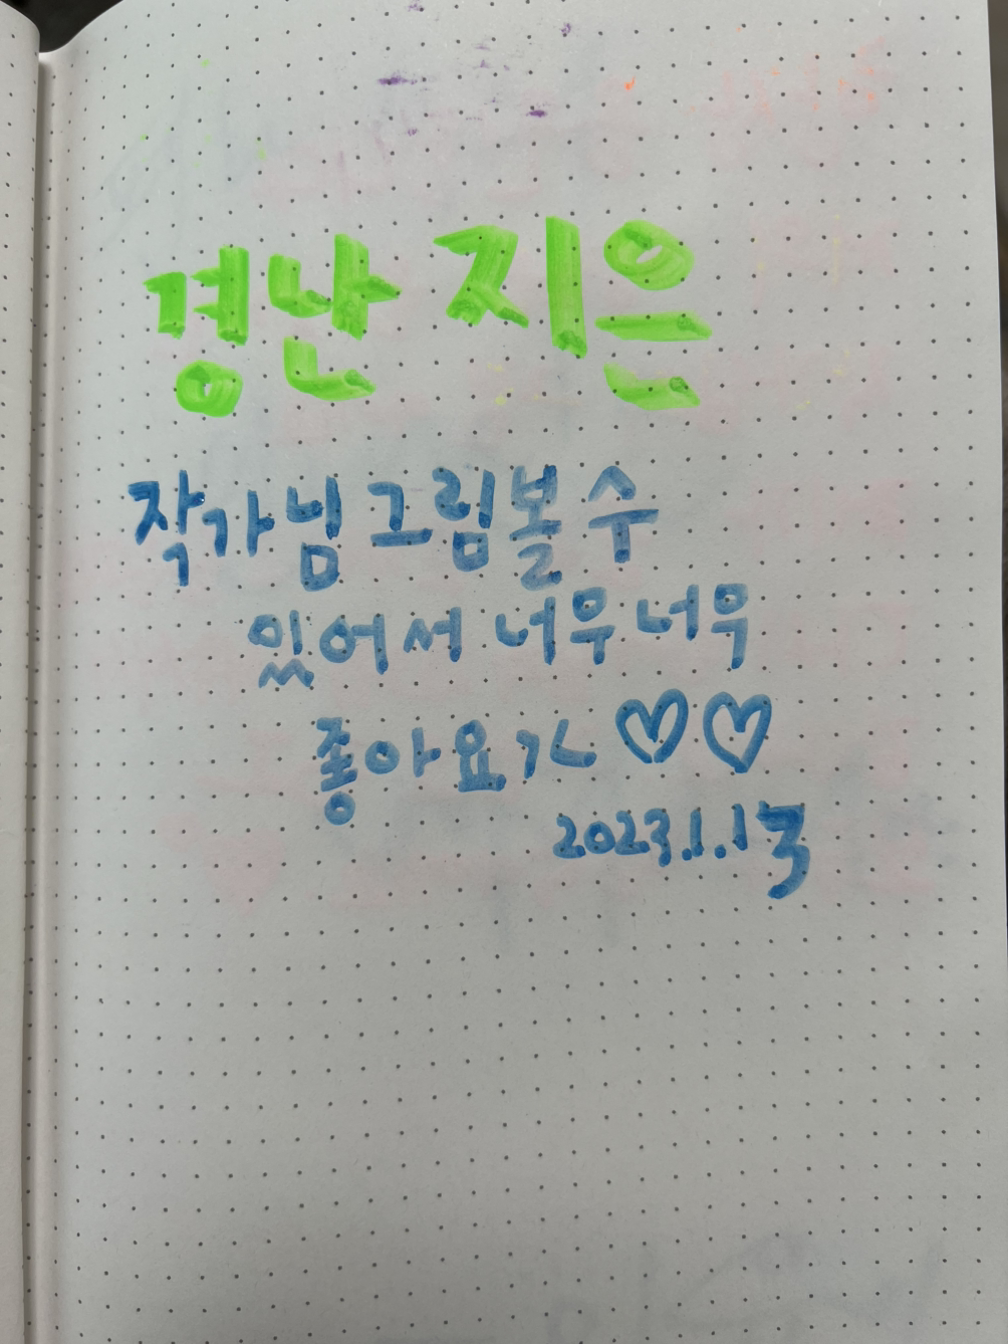 경난 지은
작가님 그림 볼 수
있어서 너우너우
좋아요ㅠㅠ ♡♡
2023.1.13